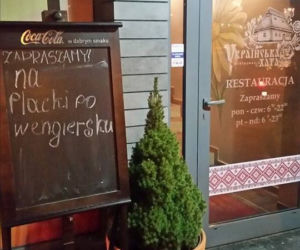 Coca-Cola
w dobrym smaku
ZAPRASZAMY!
na
Placki po
wengiersku
Українська
Хата
RESTAURACJA
Zapraszamy
pon - czw: 6⁰⁰-22⁰⁰
pt - nd: 6⁰⁰-23⁰⁰